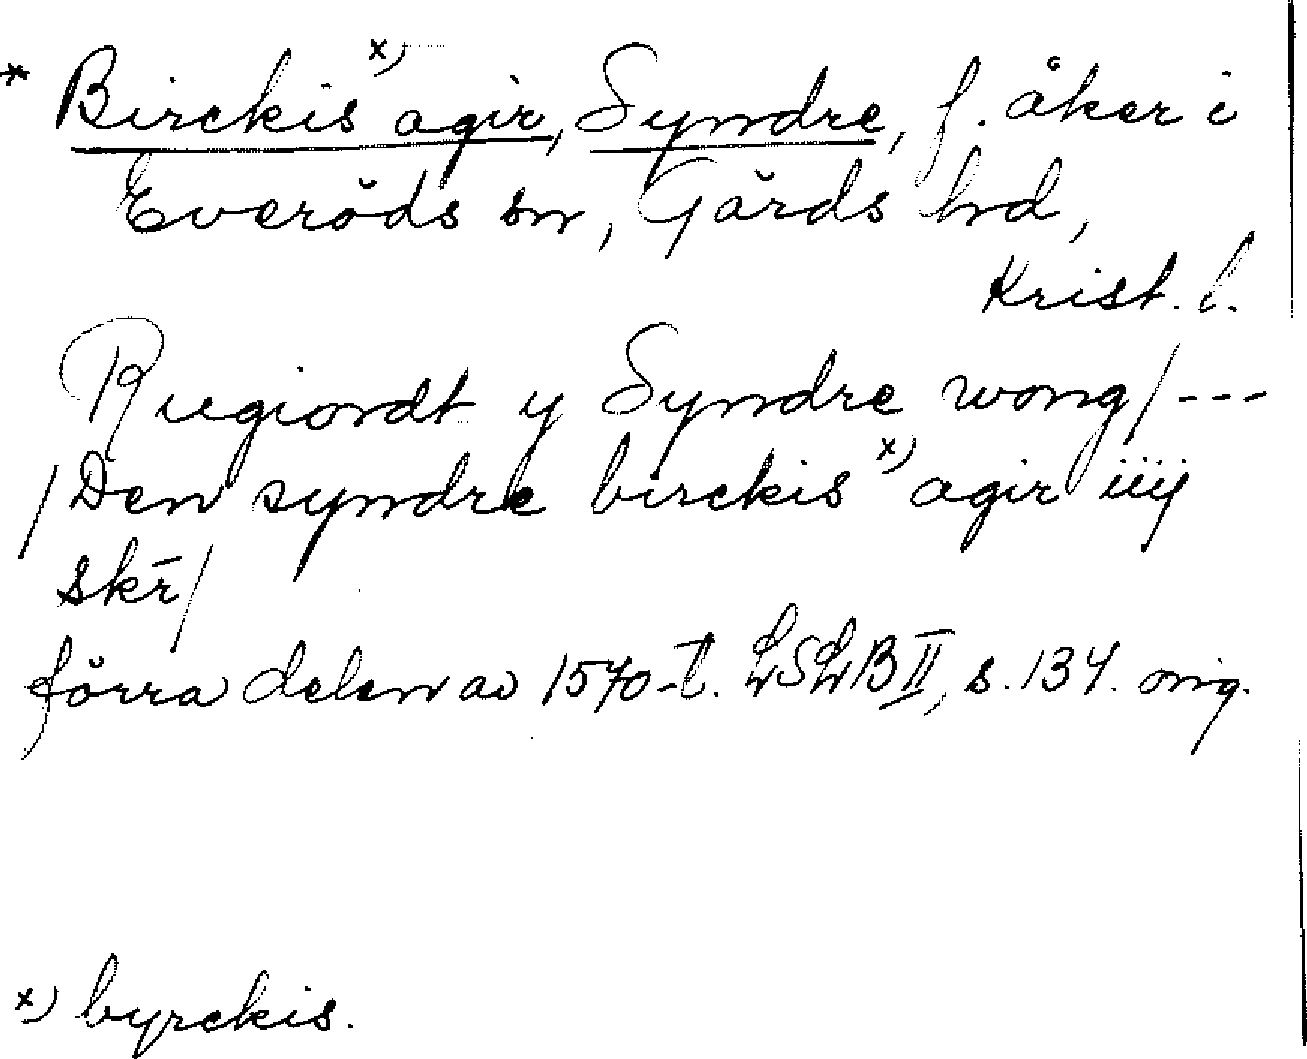 * Birckis x) agir, Syndre, f. åker i
Everöds sn, Gärds hd,
Krist. l.
Rugiordt y Syndre wong/---
/Den syndre birckis x) agir iiij
skr̄/
förra delen av 1570-t. LSLB II, s. 134. orig.
x) byrckis.